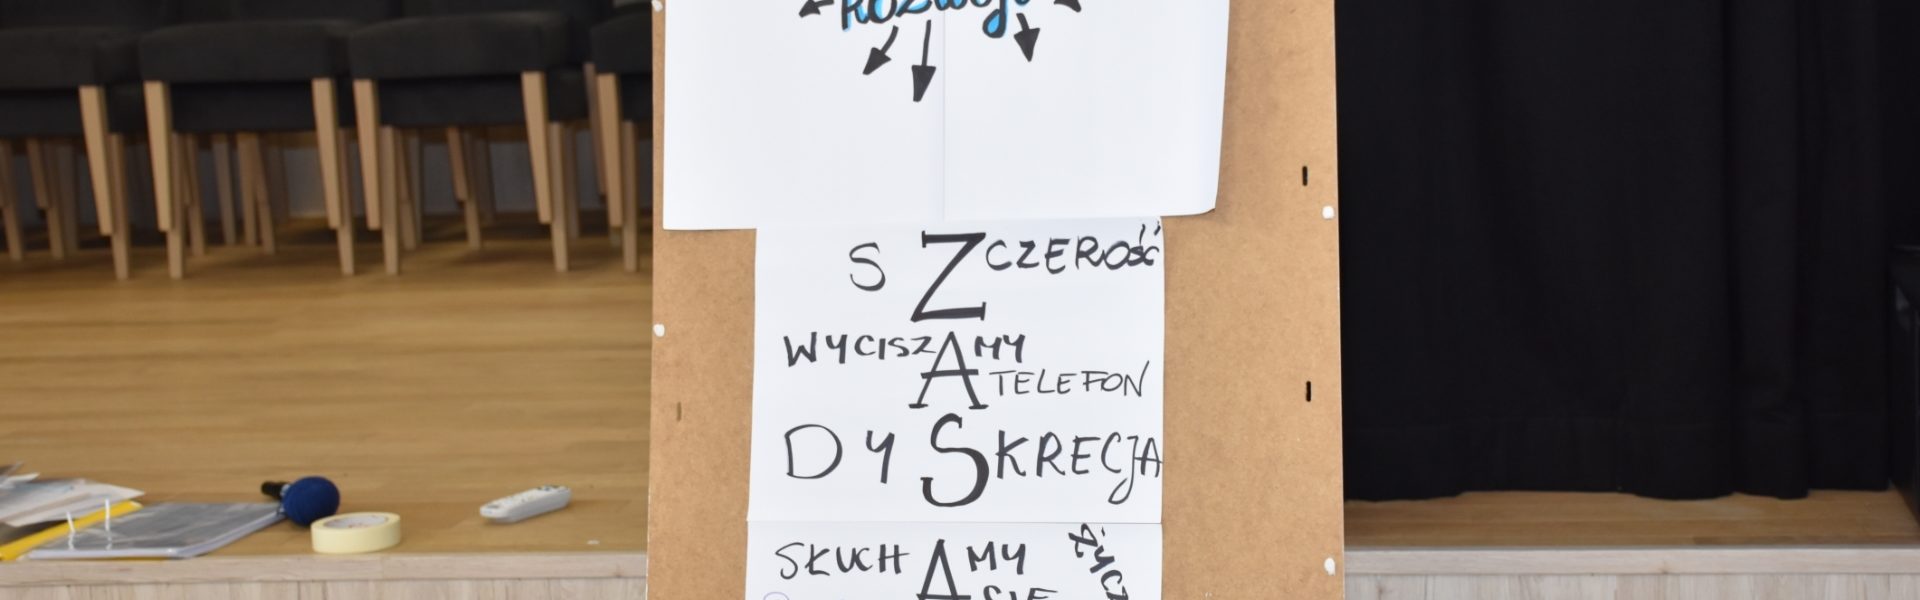 Rozwoju
SZCZEROŚĆ
WYCISZAMY
TELEFON
DYSKRECJA
SŁUCHAMY
SIĘ